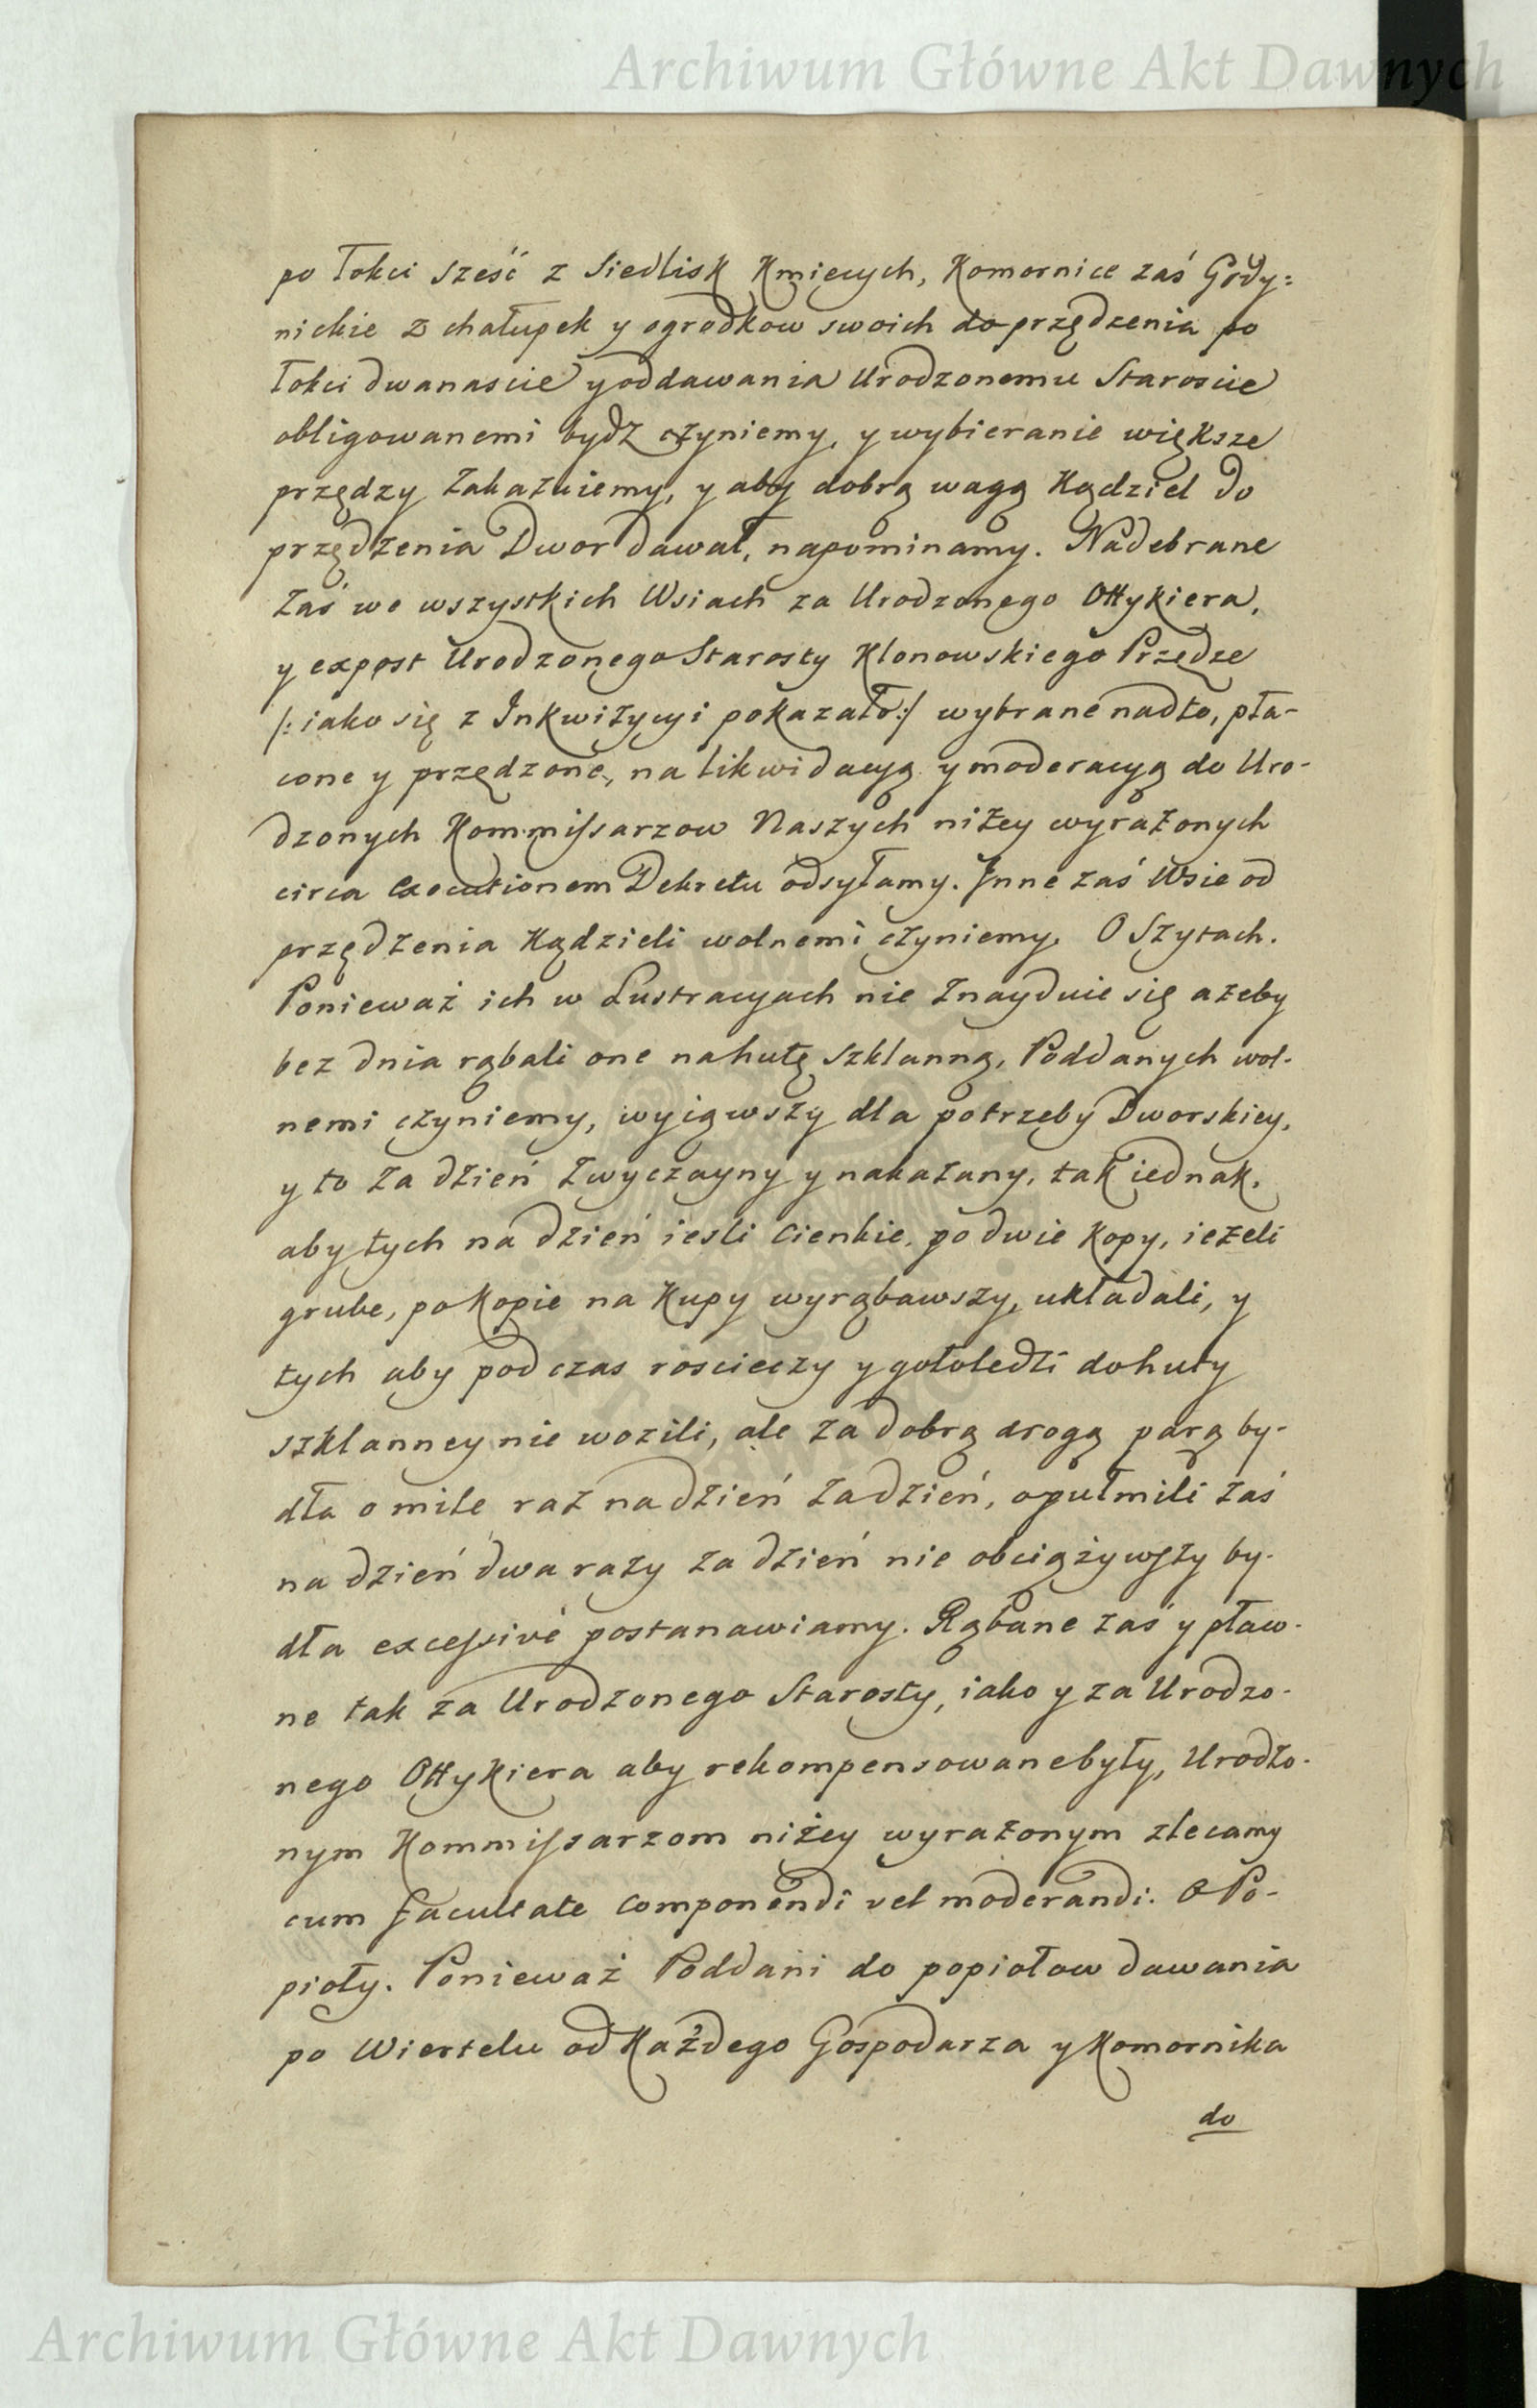 Archiwum Główne Akt Dawnych
po łokci sześć z Siedlisk Kmiecych, Komornice zaś Grdy:
nickie z chałupek y ogrodkow swoich do przędzenia po
łokci dwanascie y oddawania Urodzonemu Staroscie
obligowanemi bydź czyniemy, y wybieranie większe
przędzy zakazuiemy, y aby dobrą wagą Kądziel do
przędzenia Dwor dawał, napominamy. Nadebrane
zaś we wszystkich Wsiach za Urodzonego Ottykiera,
y expost Urodzonego Starosty Klonowskiego Przędze
/: iako się z Inkwizycyi pokazało :/ wybrane nadto, pła-
cone y przędzone, na likwidacyą y moderacyą do Uro-
dzonych Kommissarzow Naszych niżey wyrażonych
circa executionem Dekretu odsyłamy. Inne zaś Wsie od
przędzenia Kądzieli wolnemi czyniemy. O Szytach.
Ponieważ ich w Lustracyach nie znayduie się ażeby
bez dnia rąbali one na hutę szklanną, Poddanych wol-
nemi czyniemy, wyiąwszy dla potrzeby Dworskiey,
y to za dzień zwyczayny y nakazany, tak iednak,
aby tych na dzień iesli cienkie, po dwie kopy, ieżeli
grube, po kopie na kupy wyrąbawszy, układali, y
tych aby pod czas roscieczy y gołoledzi do huty
szklanney nie wozili, ale za dobrą drogą parą by-
dła o mile raz na dzień za dzień, o pułmili zaś
na dzień dwa razy za dzień nie obciążywszy by-
dła excessivè postanawiamy. Rąbane zaś y pław-
ne tak za Urodzonego Starosty, iako y za Urodzo-
nego Ottykiera aby rekompensowane były, Urodzo-
nym Kommissarzom niżey wyrażonym zlecamy
cum facultate componendi vel moderandi. O Po-
pioły. Ponieważ Poddani do popiołow dawania
po Wiertelu od Każdego Gospodarza y Komornika
do
Archiwum Główne Akt Dawnych